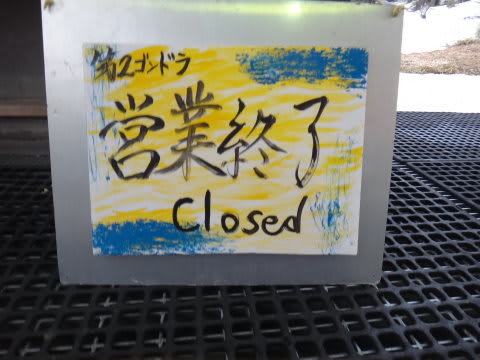 第2ゴンドラ
営業終了
Closed